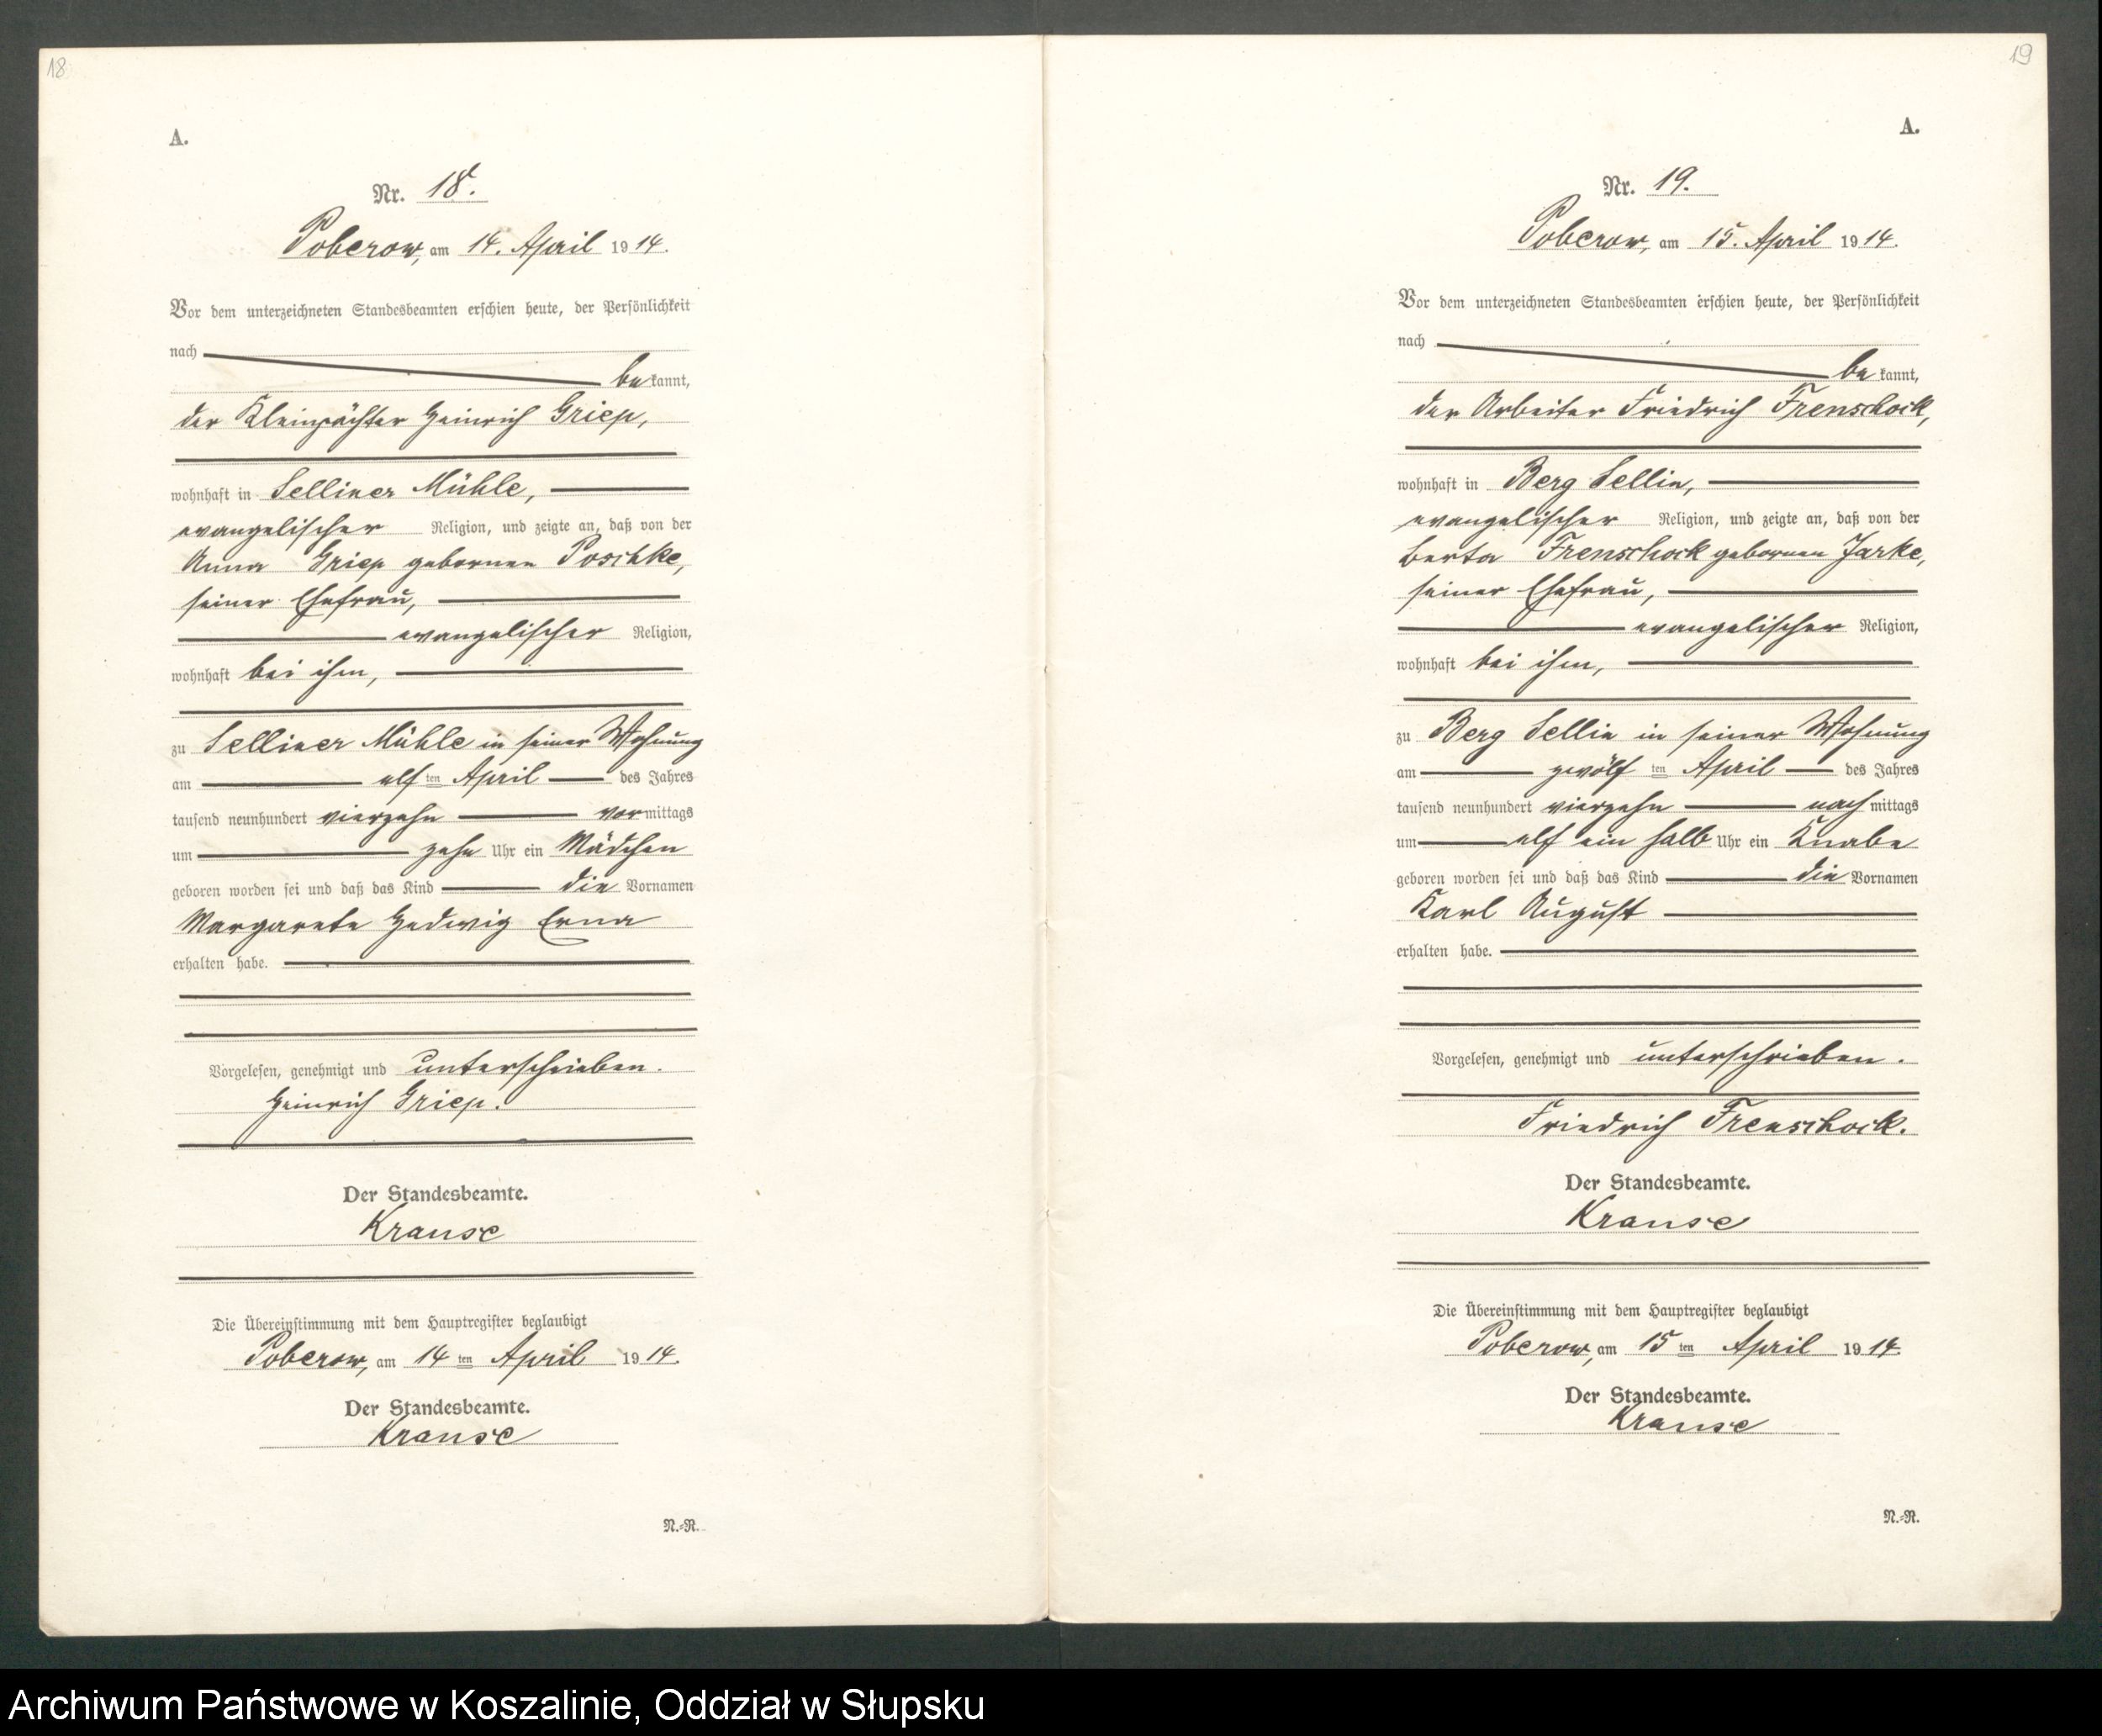 18
A.
Nr. 18.
Poberow, am 14. April 1914.
Vor dem unterzeichneten Standesbeamten erschien heute, der Persönlichkeit
nach
bekannt,
der Kleinpächter Heinrich Griep,
wohnhaft in Selliner Mühle,
evangelischer Religion, und zeigte an, daß von der
Anna Griep gebornen Poschke,
seiner Ehefrau,
evangelischer Religion,
wohnhaft bei ihm,
zu Selliner Mühle in seiner Wohnung
am elften April des Jahres
tausend neunhundert vierzehn vormittags
um zehn Uhr ein Mädchen
geboren worden sei und daß das Kind die Vornamen
Margarete Hedwig Erna
erhalten habe.
Vorgelesen, genehmigt und unterschrieben.
Heinrich Griep.
Der Standesbeamte.
Krause
Die Übereinstimmung mit dem Hauptregister beglaubigt
Poberow, am 14ten April 1914.
Der Standesbeamte.
Krause
N.=R.
19
A.
Nr. 19.
Poberow, am 15. April 1914.
Vor dem unterzeichneten Standesbeamten erschien heute, der Persönlichkeit
nach
bekannt,
der Arbeiter Friedrich Frenschock,
wohnhaft in Berg Sellin,
evangelischer Religion, und zeigte an, daß von der
Berta Frenschock gebornen Jarke,
seiner Ehefrau,
evangelischer Religion,
wohnhaft bei ihm,
zu Berg Sellin in seiner Wohnung
am zwölften April des Jahres
tausend neunhundert vierzehn nachmittags
um elf ein halb Uhr ein Knabe
geboren worden sei und daß das Kind die Vornamen
Karl August
erhalten habe.
Vorgelesen, genehmigt und unterschrieben.
Friedrich Frenschock.
Der Standesbeamte.
Krause
Die Übereinstimmung mit dem Hauptregister beglaubigt
Poberow, am 15ten April 1914.
Der Standesbeamte.
Krause
N.=R.
Archiwum Państwowe w Koszalinie, Oddział w Słupsku